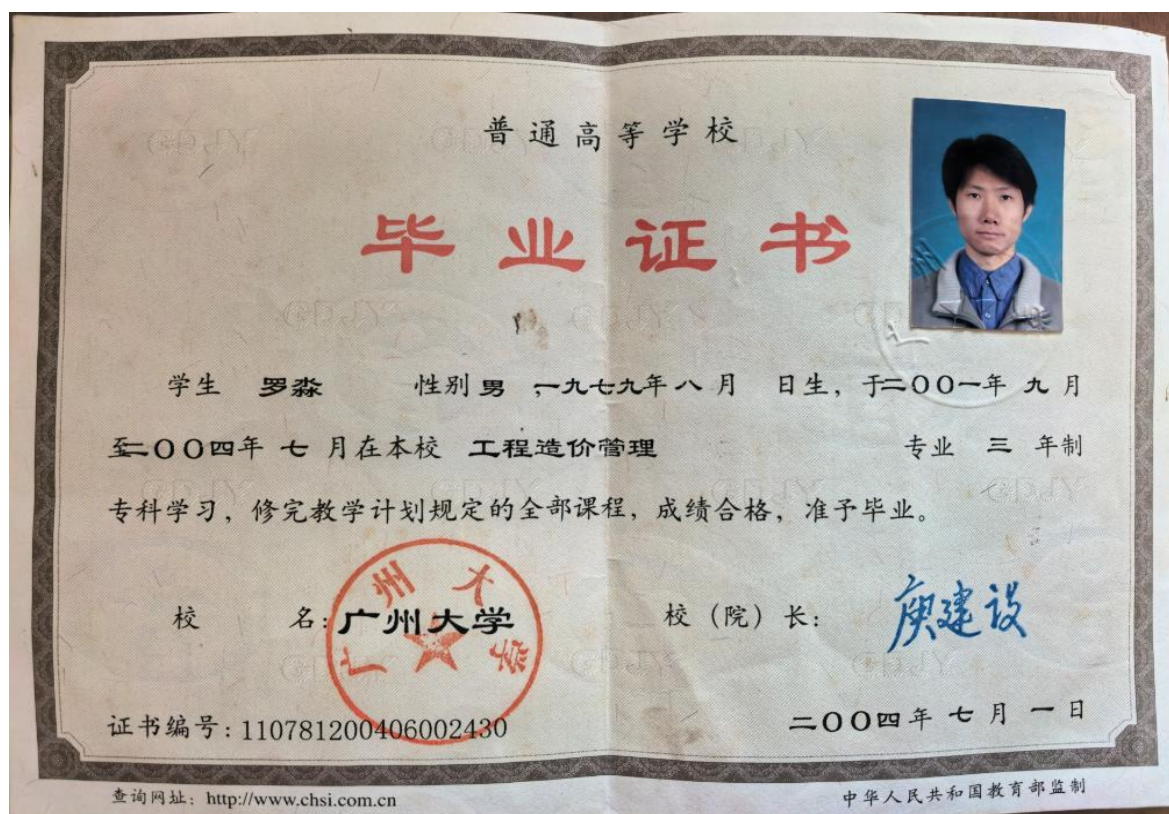 普通高等学校
毕业证书
学生 罗淼 性别 男 ,一九七九年 八 月 日生, 于二〇〇一年 九 月
至二〇〇四年 七 月在本校 工程造价管理 专业 三 年制
专科学习, 修完教学计划规定的全部课程, 成绩合格, 准予毕业。
校 名: 广州大学 校 (院) 长: 庾建设
广州大学
证书编号: 110781200406002430 二〇〇四年 七 月 一 日
查询网址: http://www.chsi.com.cn 中华人民共和国教育部监制